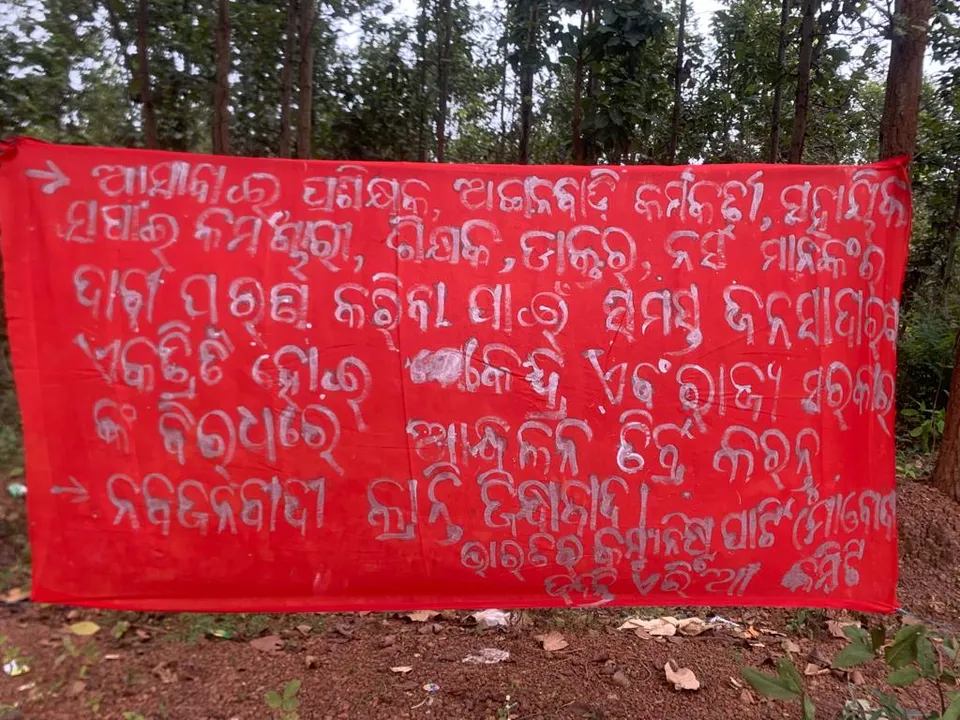 → ଆସାବାଇ ପଶିକ୍ଷକ, ଅଙ୍ଗନବାଡ଼ି କର୍ମକର୍ତ୍ତୀ, ସହାୟିକା
ସଫାଇ କର୍ମଚ୍ଚାରୀ, ଶିଯକ, ଡାକ୍ତର, ନର୍ସ ମାନଙ୍କର
ଦାବୀ ପୂରଣ କରିବା ପାଇଁ ସମସ୍ତ ଜନସାଧାରଣ
ଏକତ୍ରିତ ହୋଇ କେନ୍ଦ୍ର ଏବଂ ରାଜ୍ୟ ସରକାର
ଙ୍କ ବିରୁଧରେ ଆନ୍ଦୋଳନ ତିବ୍ର କରନ୍ତୁ
→ ନବଜନବାଦୀ କ୍ରାନ୍ତି ଜିନ୍ଦାବାଦ।
ଭାରତର କମ୍ୟୁନିଷ୍ଟ ପାର୍ଟି (ମାଓବାଦୀ
ଏରିଆ କମିଟି